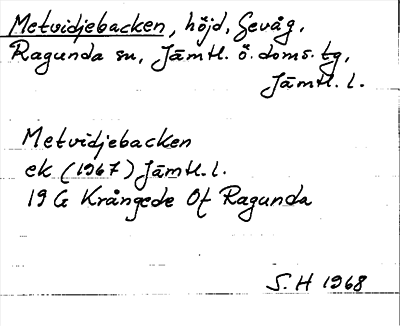 Metvidjebacken, höjd, Gevåg,
Ragunda sn, Jämtl. ö. doms. tg,
Jämtl. l.
Metvidjebacken
ek (1967) Jämtl. l.
19 G Krångede Of Ragunda
S. H 1968